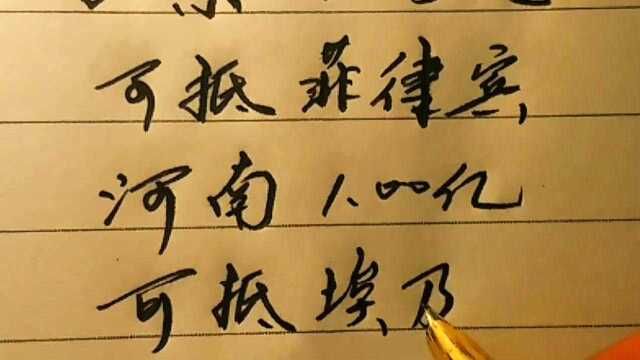 可抵菲律宾
河南1.00亿
可抵埃及